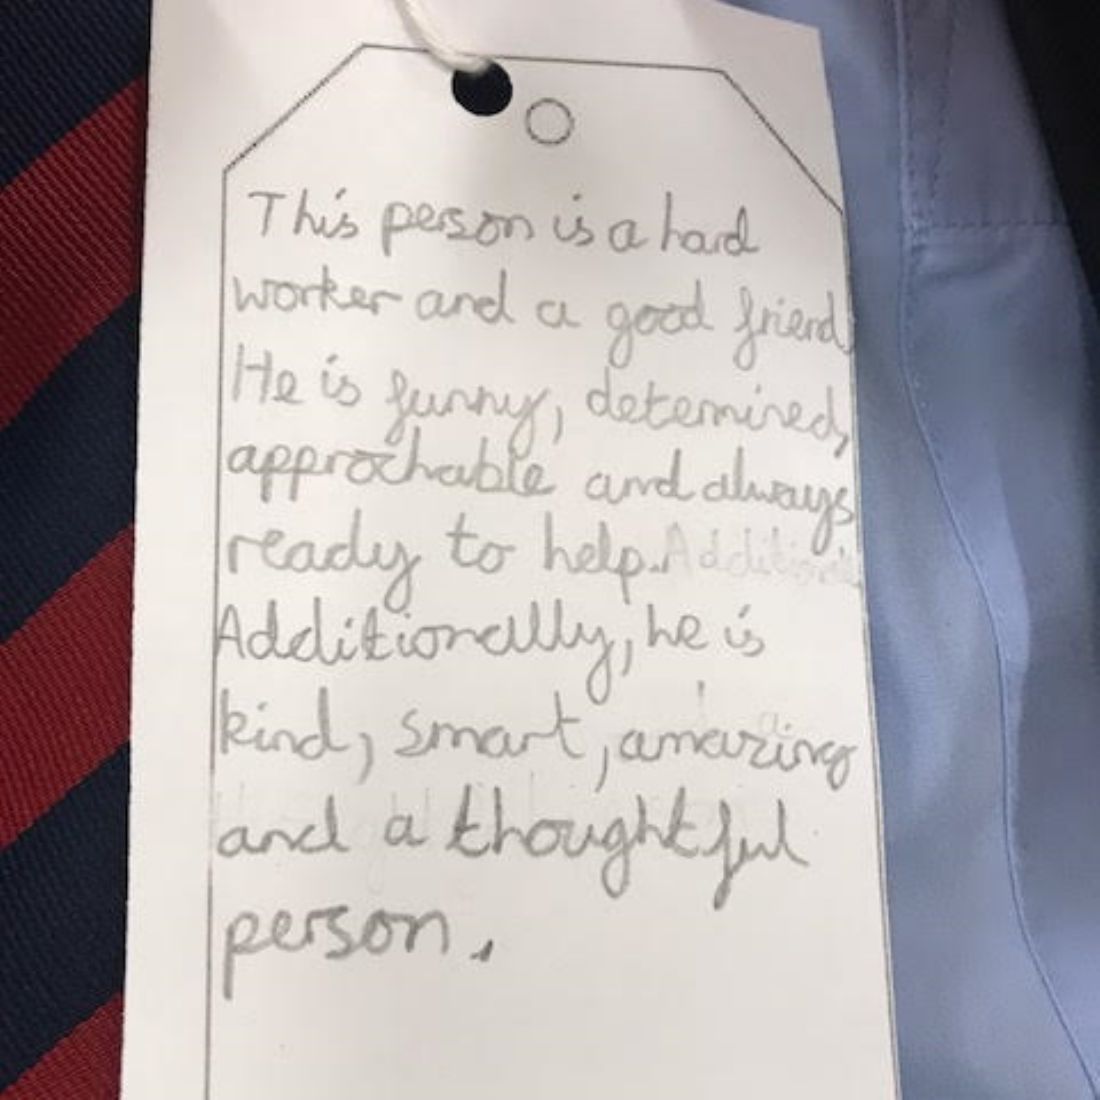 This person is a hard
worker and a good friend
He is funny, detemined,
approchable and always
ready to help. Additional
Additionally, he is
kind, smart, amazing
and a thoughtful
person.